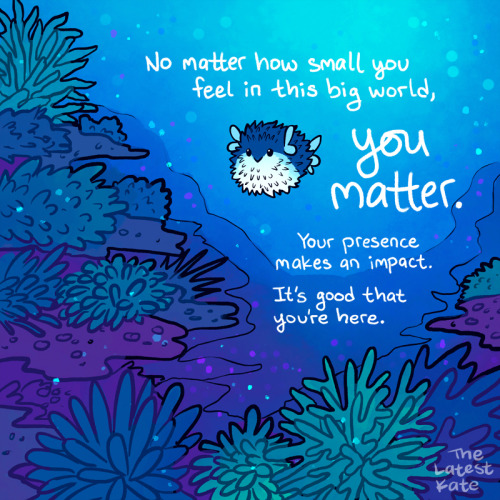 No matter how small you
feel in this big world,
you
matter.
Your presence
makes an impact.
It's good that
you're here.
The
Latest
Kate